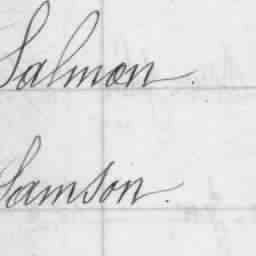 Salmon.
Samson.